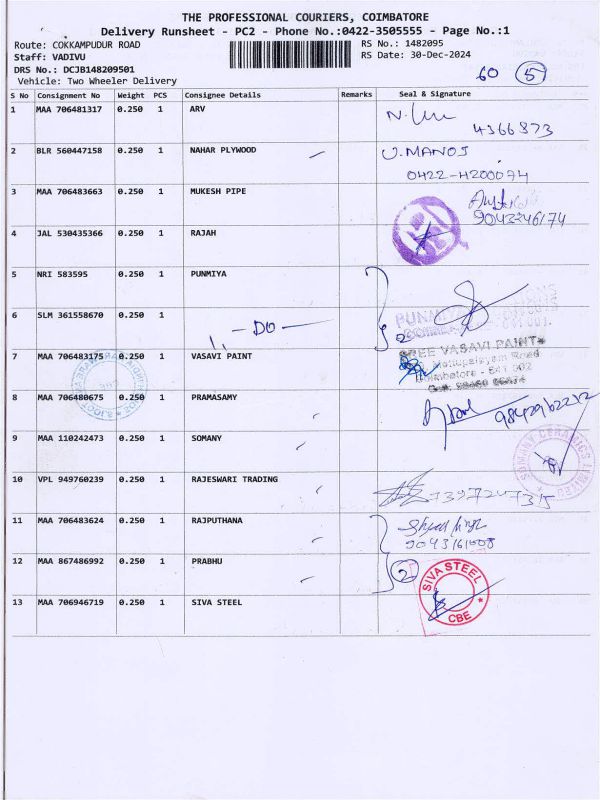 THE PROFESSIONAL COURIERS, COIMBATORE
Delivery Runsheet - PC2 - Phone No.:0422-3505555 - Page No.:1
Route: COKKAMPUDUR ROAD RS No.: 1482095
Staff: VADIVU RS Date: 30-Dec-2024
DRS No.: DCJB148209501
Vehicle: Two Wheeler Delivery 60 5
S No Consignment No Weight PCS Consignee Details Remarks Seal & Signature
1 MAA 706481317 0.250 1 ARV
4366873
2 BLR 560447158 0.250 1 NAHAR PLYWOOD U.MANOJ
0422-4200074
3 MAA 706483663 0.250 1 MUKESH PIPE
9043246174
4 JAL 530435366 0.250 1 RAJAH
5 NRI 583595 0.250 1 PUNMIYA
6 SLM 361558670 0.250 1
-DO- 2
7 MAA 706483175 0.250 1 VASAVI PAINT SREE VASAVI PAINT
Coimbatore - 641 002
8 MAA 706480675 0.250 1 PRAMASAMY
9842962212
9 MAA 110242473 0.250 1 SOMANY SOMANY CERAMICS LIMITED
10 VPL 949760239 0.250 1 RAJESWARI TRADING
11 MAA 706483624 0.250 1 RAJPUTHANA
9043161008
12 MAA 867486992 0.250 1 PRABHU 2
13 MAA 706946719 0.250 1 SIVA STEEL SIVA STEEL
CBE